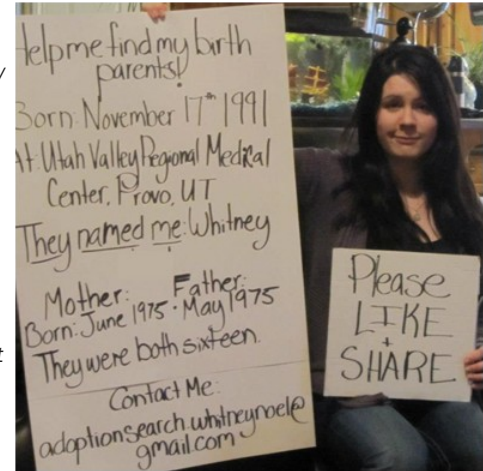 Help me find my birth
parents!
Born: November 17th 1991
At: Utah Valley Regional Medical
Center, Provo, UT
They named me: Whitney
Mother: Father:
Born: June 1975 · May 1975
They were both sixteen.
Contact Me:
adoptionsearch.whitneynoel@
gmail.com
Please
LIKE
+
SHARE